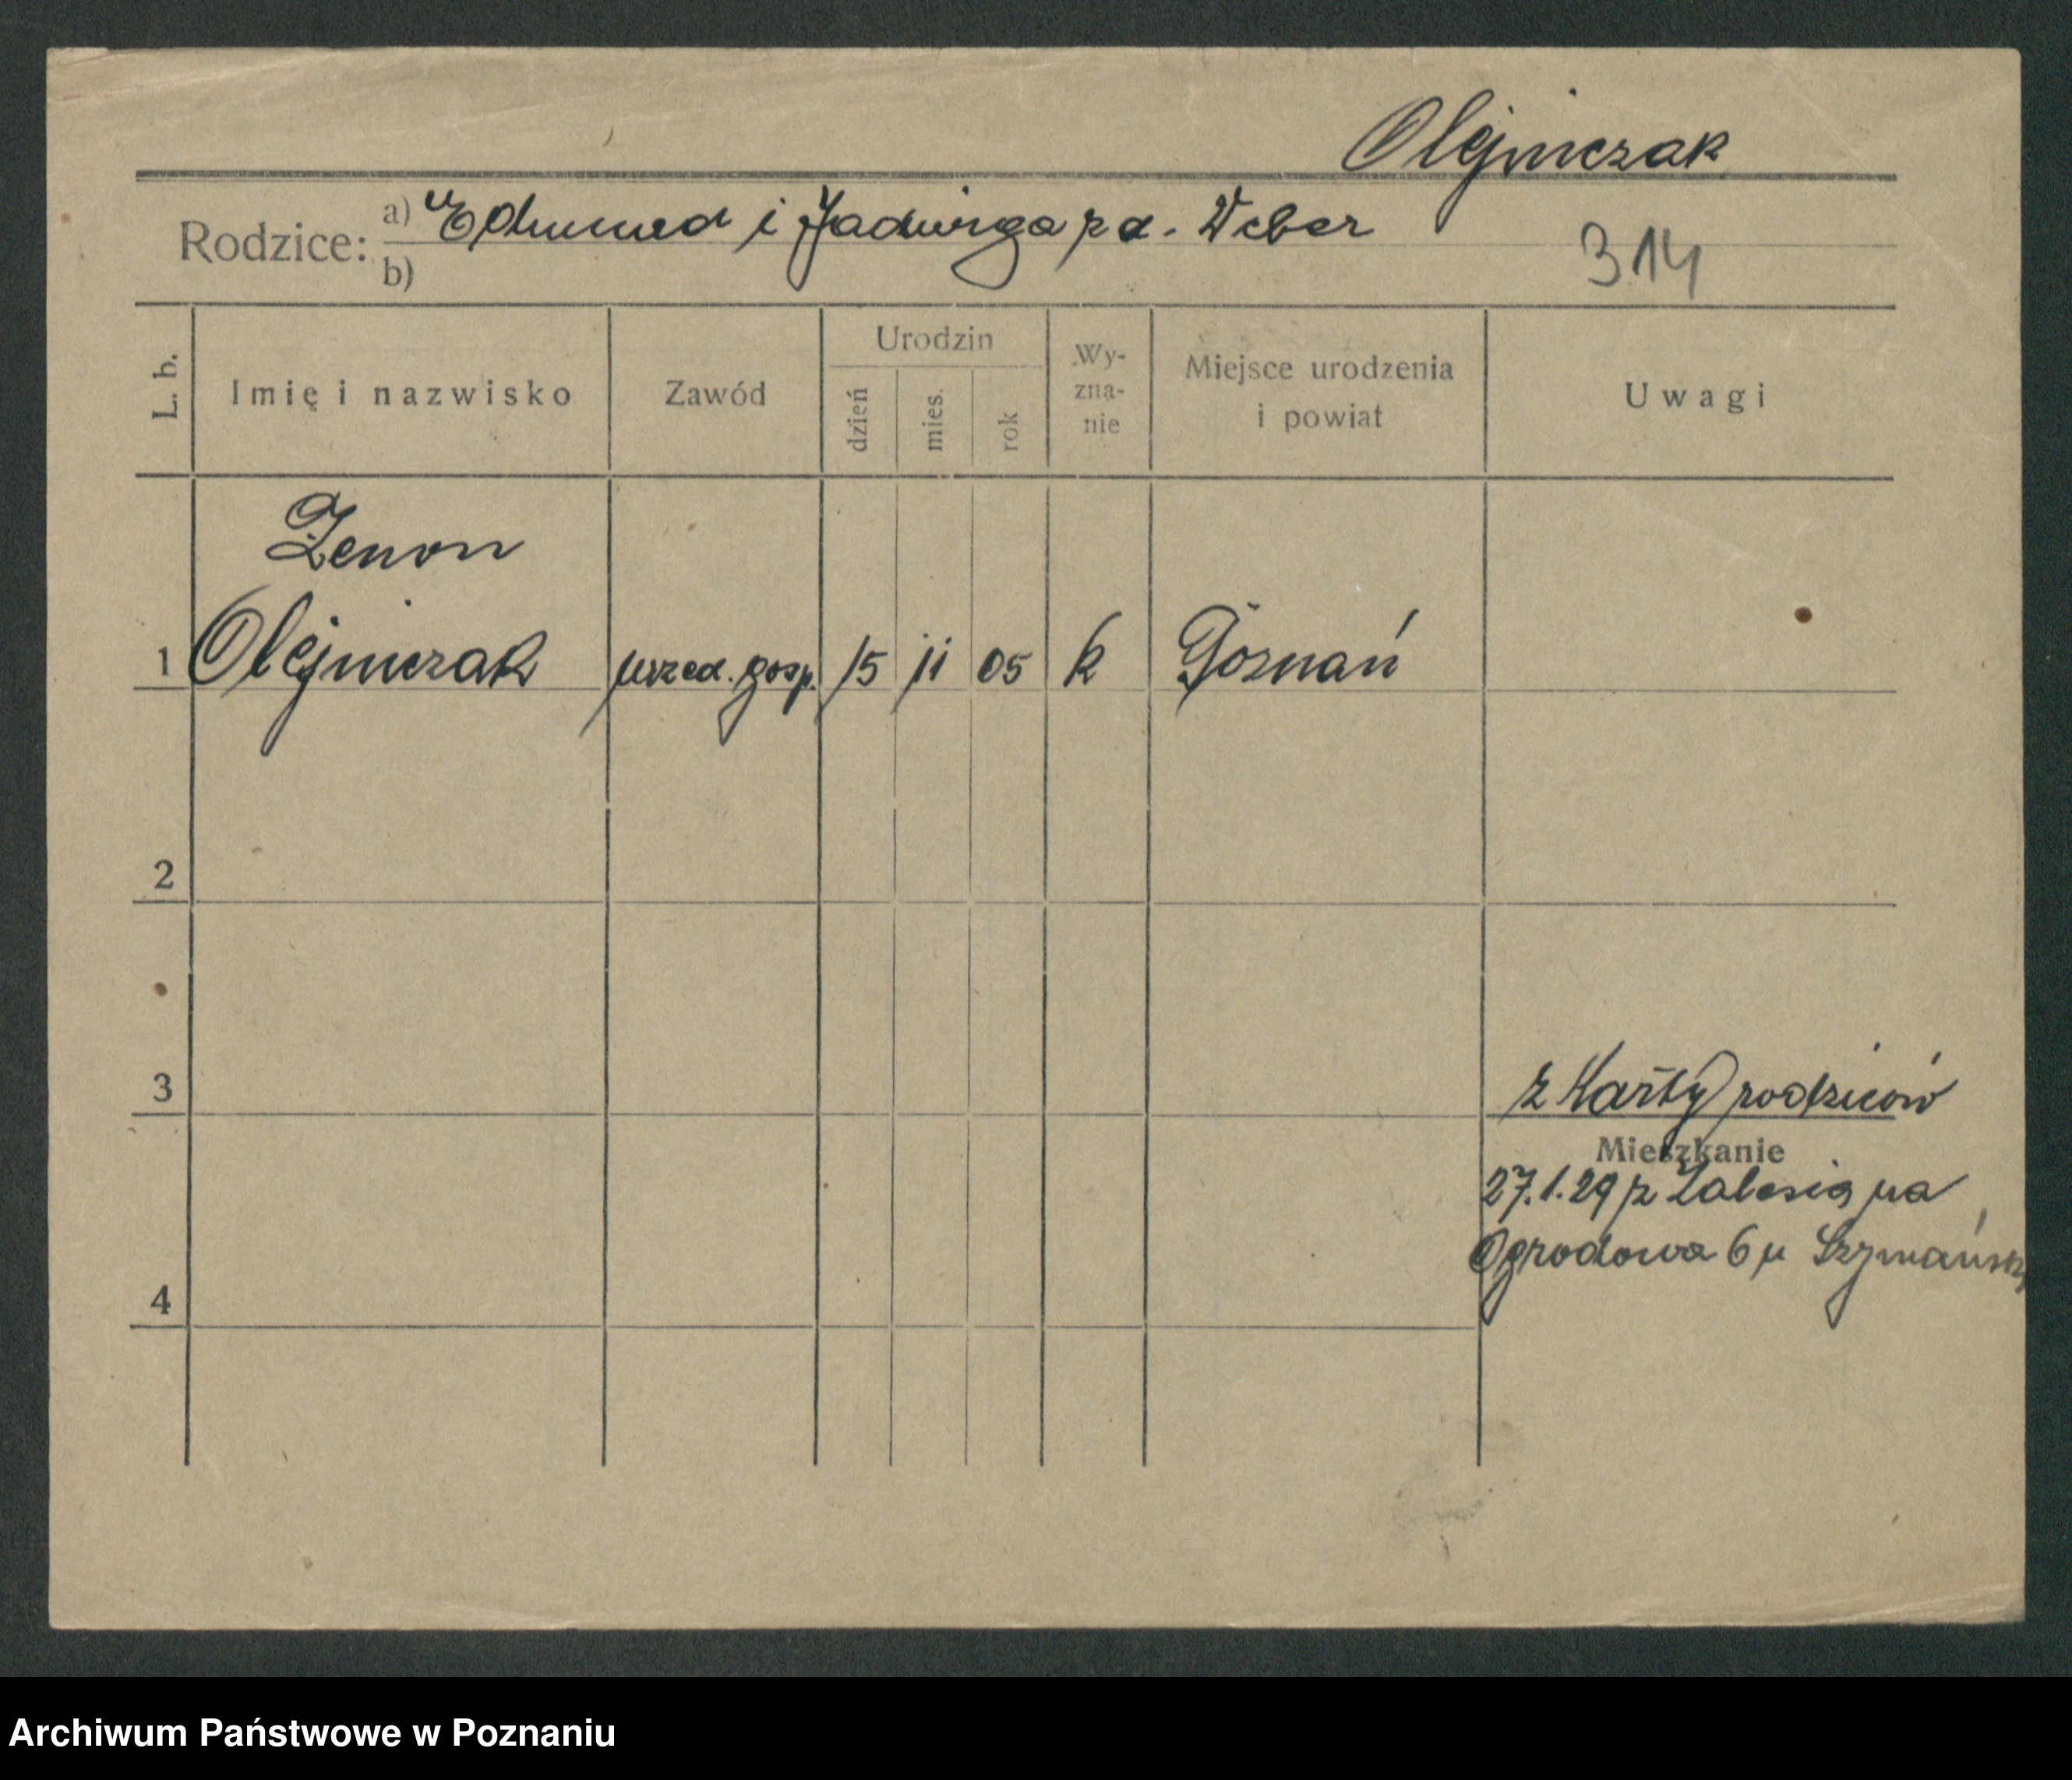 Olejniczak
Rodzice: a) Edmund i Jadwiga z d. Weber
b)
314
L. b.
Imię i nazwisko
Zawód
Urodzin
dzień
mies.
rok
Wy-
zna-
nie
Miejsce urodzenia
i powiat
Uwagi
Zenon
1 Olejniczak urzęd. gosp. 15 11 05 k Poznań
2
3
z Karty rodziców
Mieszkanie
27.1.29 z Zalesia na
Ogrodowa 6 u
4
Archiwum Państwowe w Poznaniu